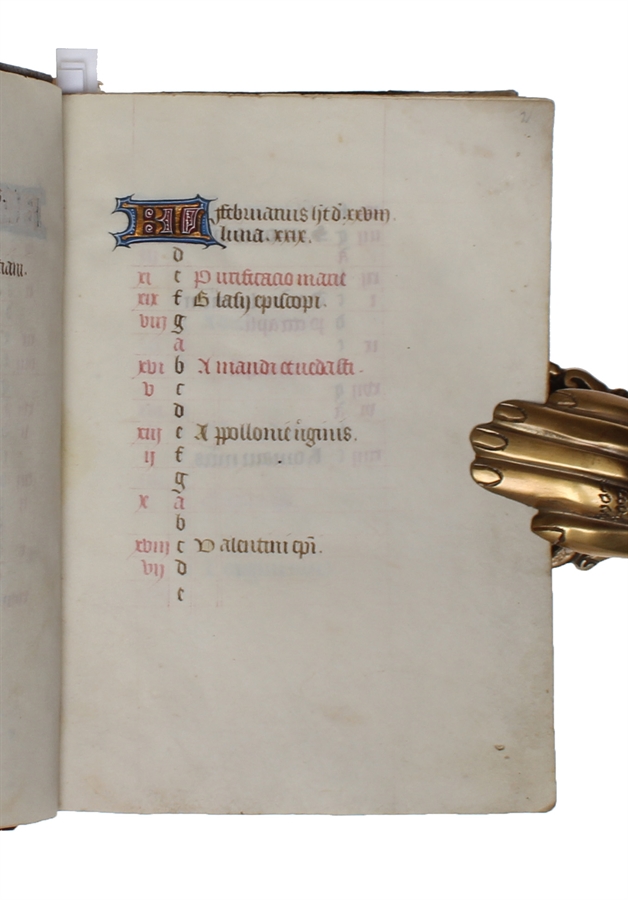 KL ffebruarius ht d. xxviij.
luna. xxix.
d
xi e Purificacio marie
xix f Blasij episcopi.
viij g
a
xvi b Amandi et uedasti.
v c
d
xiij e Appollonie ůginis.
ij f
g
x a
b
xviij c Valentini epī.
vij d
e